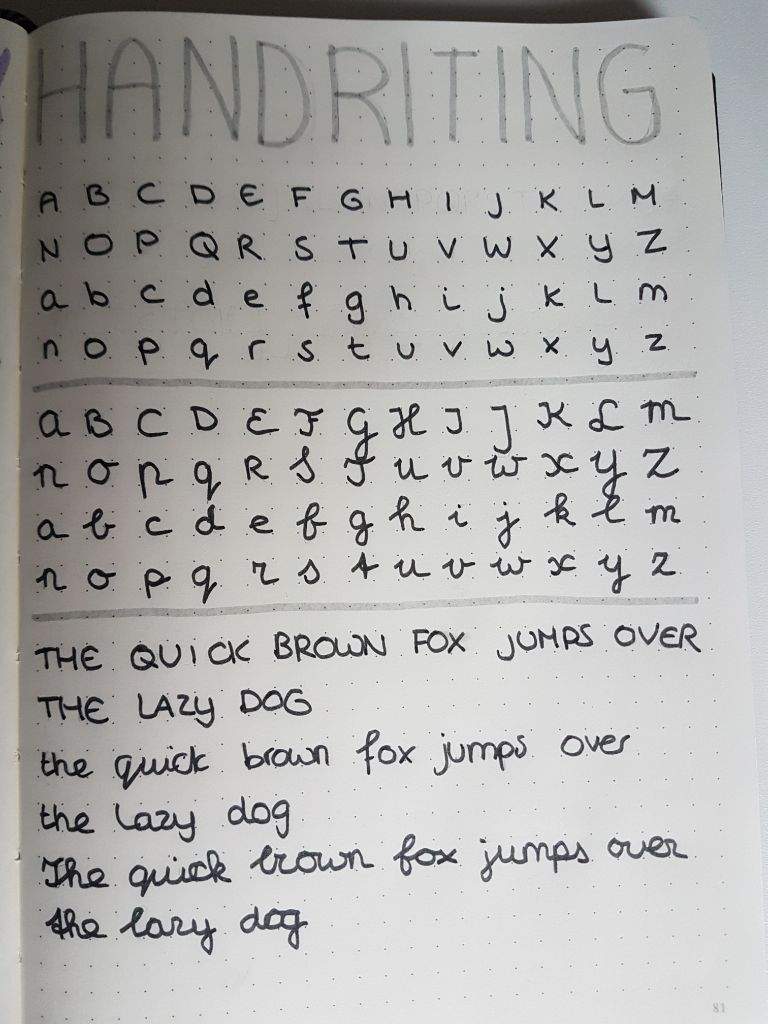 HANDRITING
A B C D E F G H I J K L M
N O P Q R S T U V W X Y Z
a b c d e f g h i j k L m
n o p q r s t u v w x y z
a B C D E F G H I J K L m
n o p q R S T u v w x y Z
a b c d e f g h i j k l m
n o p q r s t u v w x y z
THE QUICK BROWN FOX JUMPS OVER
THE LAZY DOG
the quick brown fox jumps over
the lazy dog
The quick brown fox jumps over
the lazy dog
81